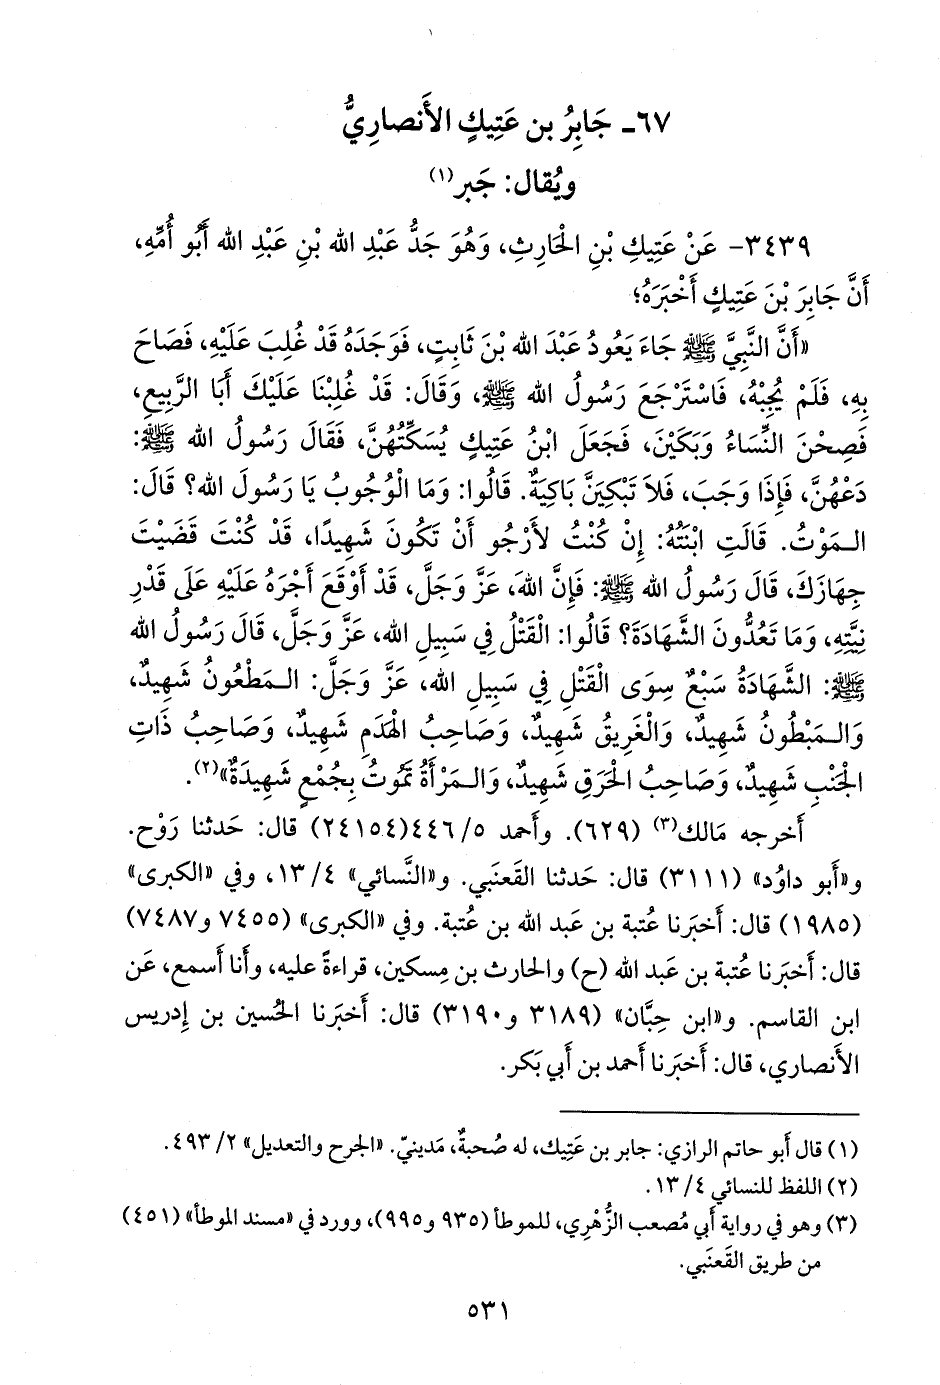 ٦٧ـ جَابِرُ بن عَتِيكٍ الأَنصارِيُّ
ويُقال: جَبر(١)
٣٤٣٩- عَنْ عَتِيكِ بْنِ الْحَارِثِ، وَهُوَ جَدُّ عَبْدِ الله بْنِ عَبْدِ الله أَبُو أُمِّهِ،
أَنَّ جَابِرَ بْنَ عَتِيكٍ أَخْبَرَهُ؛
«أَنَّ النَّبِيَّ ﷺ جَاءَ يَعُودُ عَبْدَ الله بْنَ ثَابِتٍ، فَوَجَدَهُ قَدْ غُلِبَ عَلَيْهِ، فَصَاحَ
بِهِ، فَلَمْ يُجِبْهُ، فَاسْتَرْجَعَ رَسُولُ الله ﷺ، وَقَالَ: قَدْ غُلِبْنَا عَلَيْكَ أَبَا الرَّبِيعِ،
فَصِحْنَ النِّسَاءُ وَبَكَيْنَ، فَجَعَلَ ابْنُ عَتِيكٍ يُسَكِّتُهُنَّ، فَقَالَ رَسُولُ الله ﷺ:
دَعْهُنَّ، فَإِذَا وَجَبَ، فَلاَ تَبْكِيَنَّ بَاكِيَةٌ. قَالُوا: وَمَا الْوُجُوبُ يَا رَسُولَ الله؟ قَالَ:
الـمَوْتُ. قَالَتِ ابْنَتُهُ: إِنْ كُنْتُ لأَرْجُو أَنْ تَكُونَ شَهِيدًا، قَدْ كُنْتَ قَضَيْتَ
جِهَازَكَ، قَالَ رَسُولُ الله ﷺ: فَإِنَّ اللهَ، عَزَّ وَجَلَّ، قَدْ أَوْقَعَ أَجْرَهُ عَلَيْهِ عَلَى قَدْرِ
نِيَّتِهِ، وَمَا تَعُدُّونَ الشَّهَادَةَ؟ قَالُوا: الْقَتْلُ فِي سَبِيلِ الله، عَزَّ وَجَلَّ، قَالَ رَسُولُ الله
ﷺ: الشَّهَادَةُ سَبْعٌ سِوَى الْقَتْلِ فِي سَبِيلِ الله، عَزَّ وَجَلَّ: الـمَطْعُونُ شَهِيدٌ،
وَالـمَبْطُونُ شَهِيدٌ، وَالْغَرِيقُ شَهِيدٌ، وَصَاحِبُ الْهَدَمِ شَهِيدٌ، وَصَاحِبُ ذَاتِ
الْجَنْبِ شَهِيدٌ، وَصَاحِبُ الْحَرَقِ شَهِيدٌ، وَالـمَرْأَةُ تَمُوتُ بِجُمْعٍ شَهِيدَةٌ»(٢).
أَخرجه مَالك(٣) (٦٢٩). وأَحمد ٥/ ٤٤٦(٢٤١٥٤) قال: حَدثنا رَوْح.
و«أَبو داوُد» (٣١١١) قال: حَدثنا القَعنَبي. و«النَّسائي» ٤/ ١٣، وفي «الكبرى»
(١٩٨٥) قال: أَخبَرنا عُتبة بن عَبد الله بن عُتبة. وفي «الكبرى» (٧٤٥٥ و٧٤٨٧)
قال: أَخبَرنا عُتبة بن عَبد الله (ح) والحارث بن مِسكين، قراءةً عليه، وأَنا أَسمع، عَن
ابن القاسم. و«ابن حِبَّان» (٣١٨٩ و٣١٩٠) قال: أَخبَرنا الحُسين بن إِدريس
الأَنصاري، قال: أَخبَرنا أَحمد بن أَبي بَكر.
(١) قال أَبو حاتم الرازي: جابر بن عَتِيك، له صُحبةٌ، مَدينيّ. «الجرح والتعديل» ٢/ ٤٩٣.
(٢) اللفظ للنسائي ٤/ ١٣.
(٣) وهو في رواية أَبي مُصعب الزُّهْرِي، للموطأ (٩٣٥ و٩٩٥)، وورد في «مسند الموطأ» (٤٥١)
من طريق القَعنَبي.
٥٣١